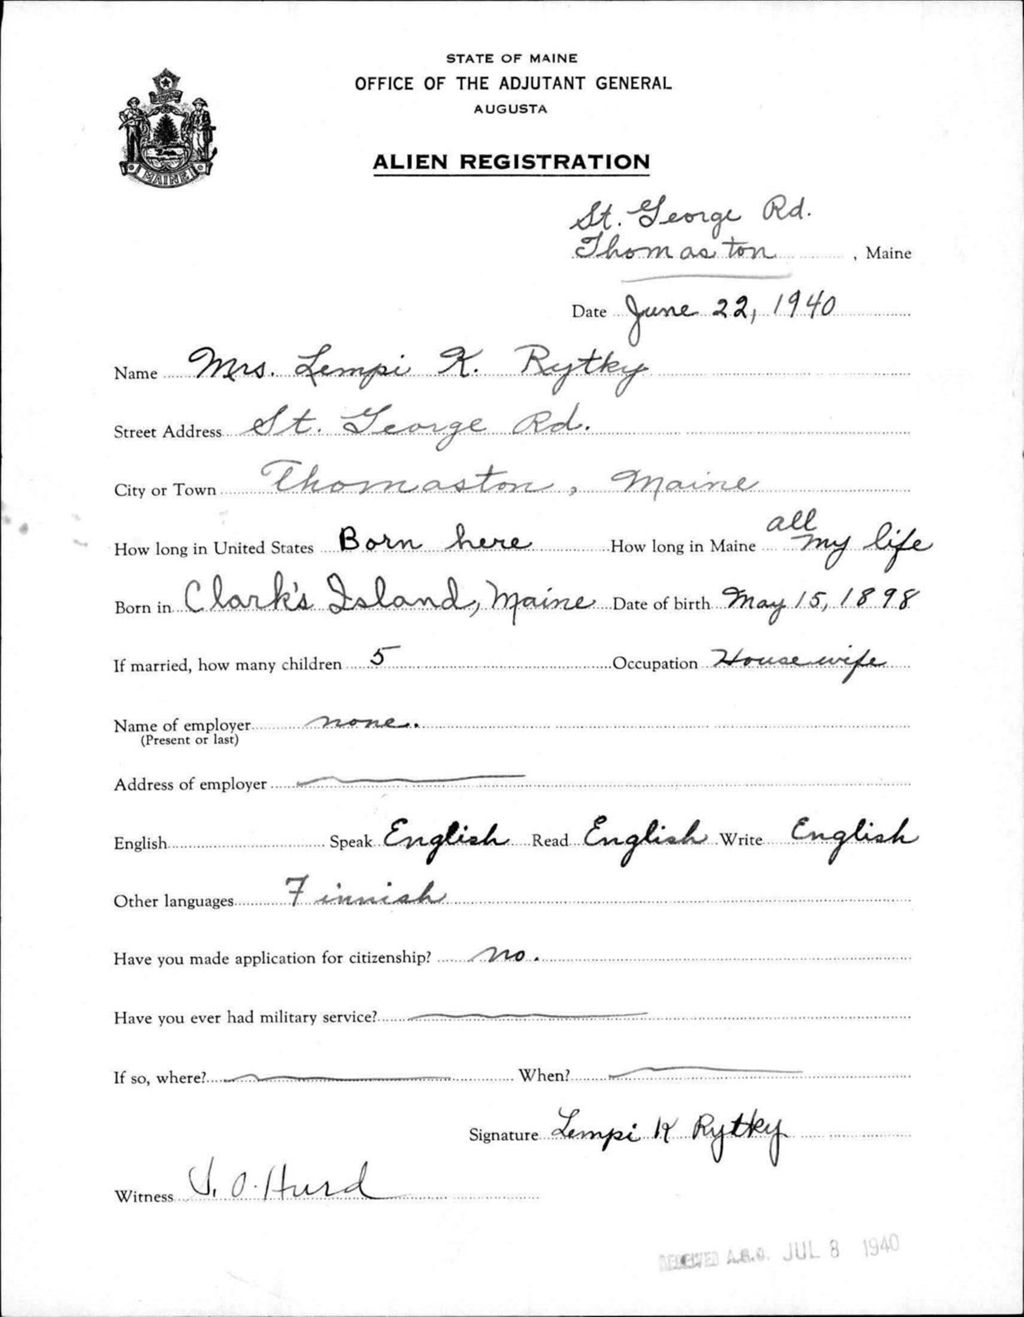 STATE OF MAINE
OFFICE OF THE ADJUTANT GENERAL
AUGUSTA
ALIEN REGISTRATION
MAINE
St. George Rd.
Thomaston , Maine
Date June 22, 1940
Name Mrs. Lempi K. Rytky
Street Address St. George Rd.
City or Town Thomaston, Maine
How long in United States Born here How long in Maine all my life
Born in Clark's Island, Maine Date of birth May 15, 1898
If married, how many children 5 Occupation Housewife
Name of employer none.
(Present or last)
Address of employer
English Speak English Read English Write English
Other languages Finnish
Have you made application for citizenship? no.
Have you ever had military service?
If so, where? When?
Signature Lempi K Rytky
Witness J. O. Hurd
RECEIVED A.G.O. JUL 8 1940